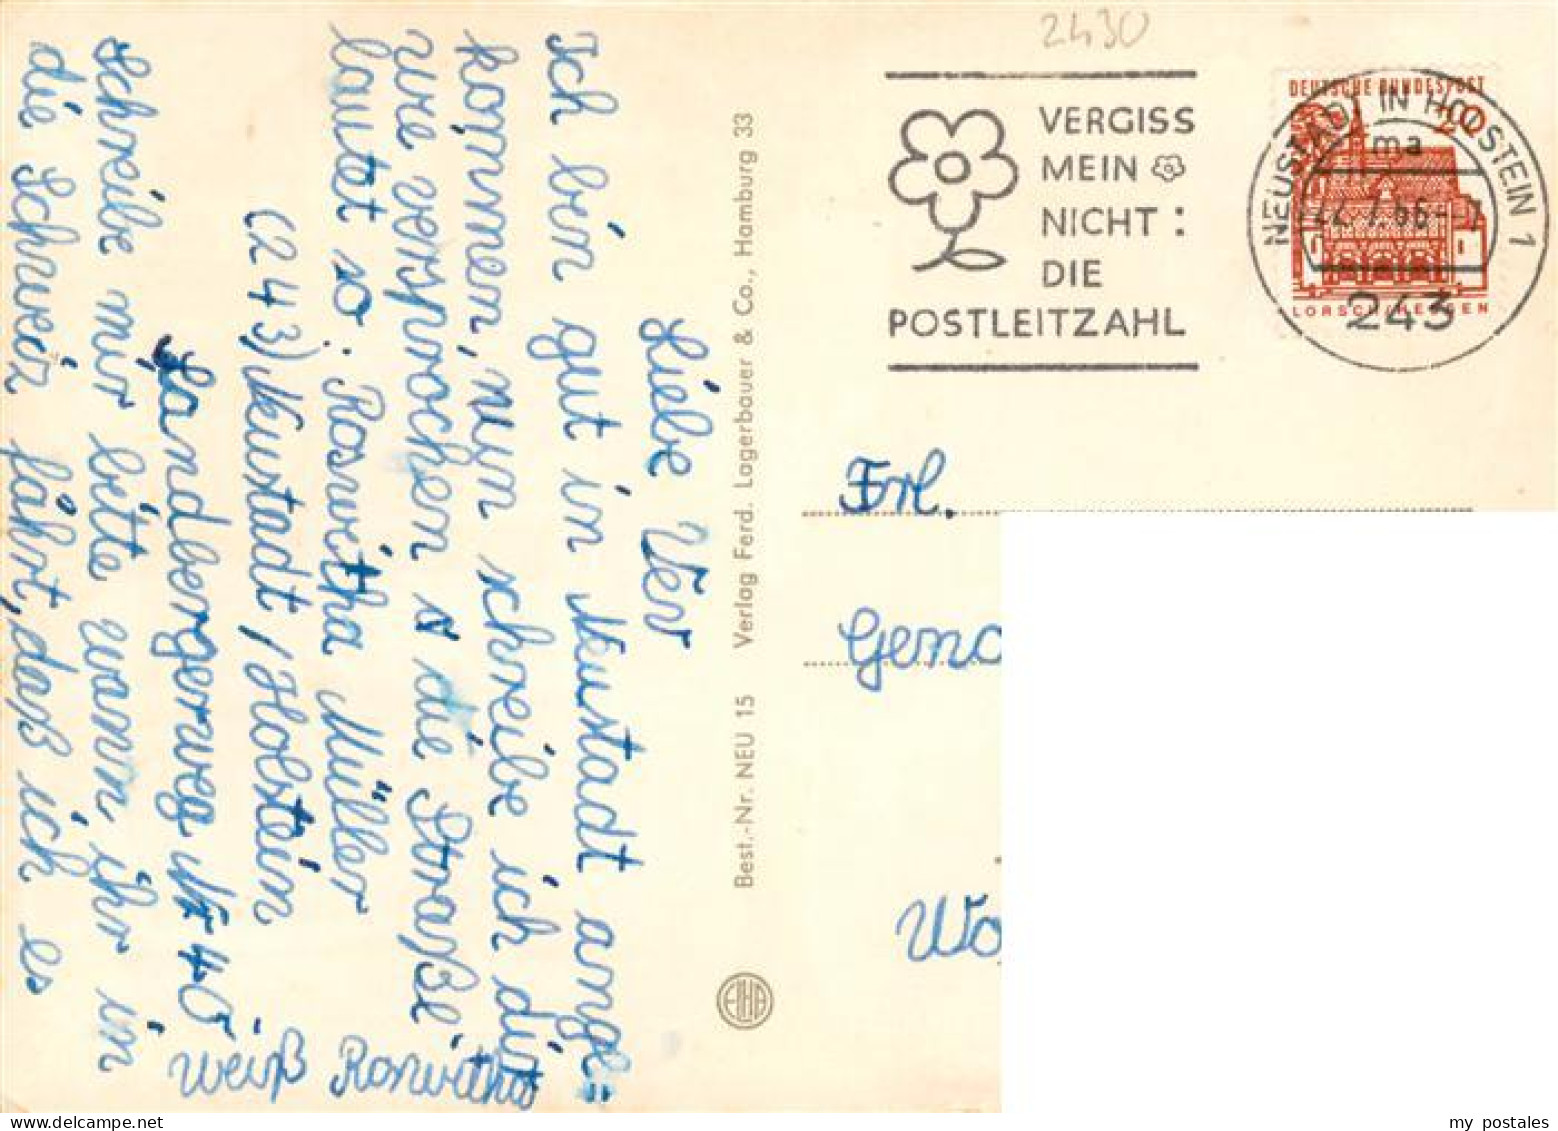 2430
VERGISS
MEIN
NICHT:
DIE
POSTLEITZAHL
DEUTSCHE BUNDESPOST
20
LORSCH/HESSEN
NEUSTADT IN HOLSTEIN 1
ma
.7.66-
243
Liebe Ver
Ich bin gut in Neustadt ange=
kommen, nun schreibe ich dir
wie versprochen s die Straße
lautet so: Roswitha Müller
(243) Neustadt/Holstein
Sandbergerweg Nr 40
Schreibe mir bitte wann ihr in
die Schweiz fährt, daß ich es
weiß Roswitha
Best.-Nr. NEU 15 Verlag Ferd. Lagerbauer & Co., Hamburg 33
Frl.
Geno
Wo
my postales